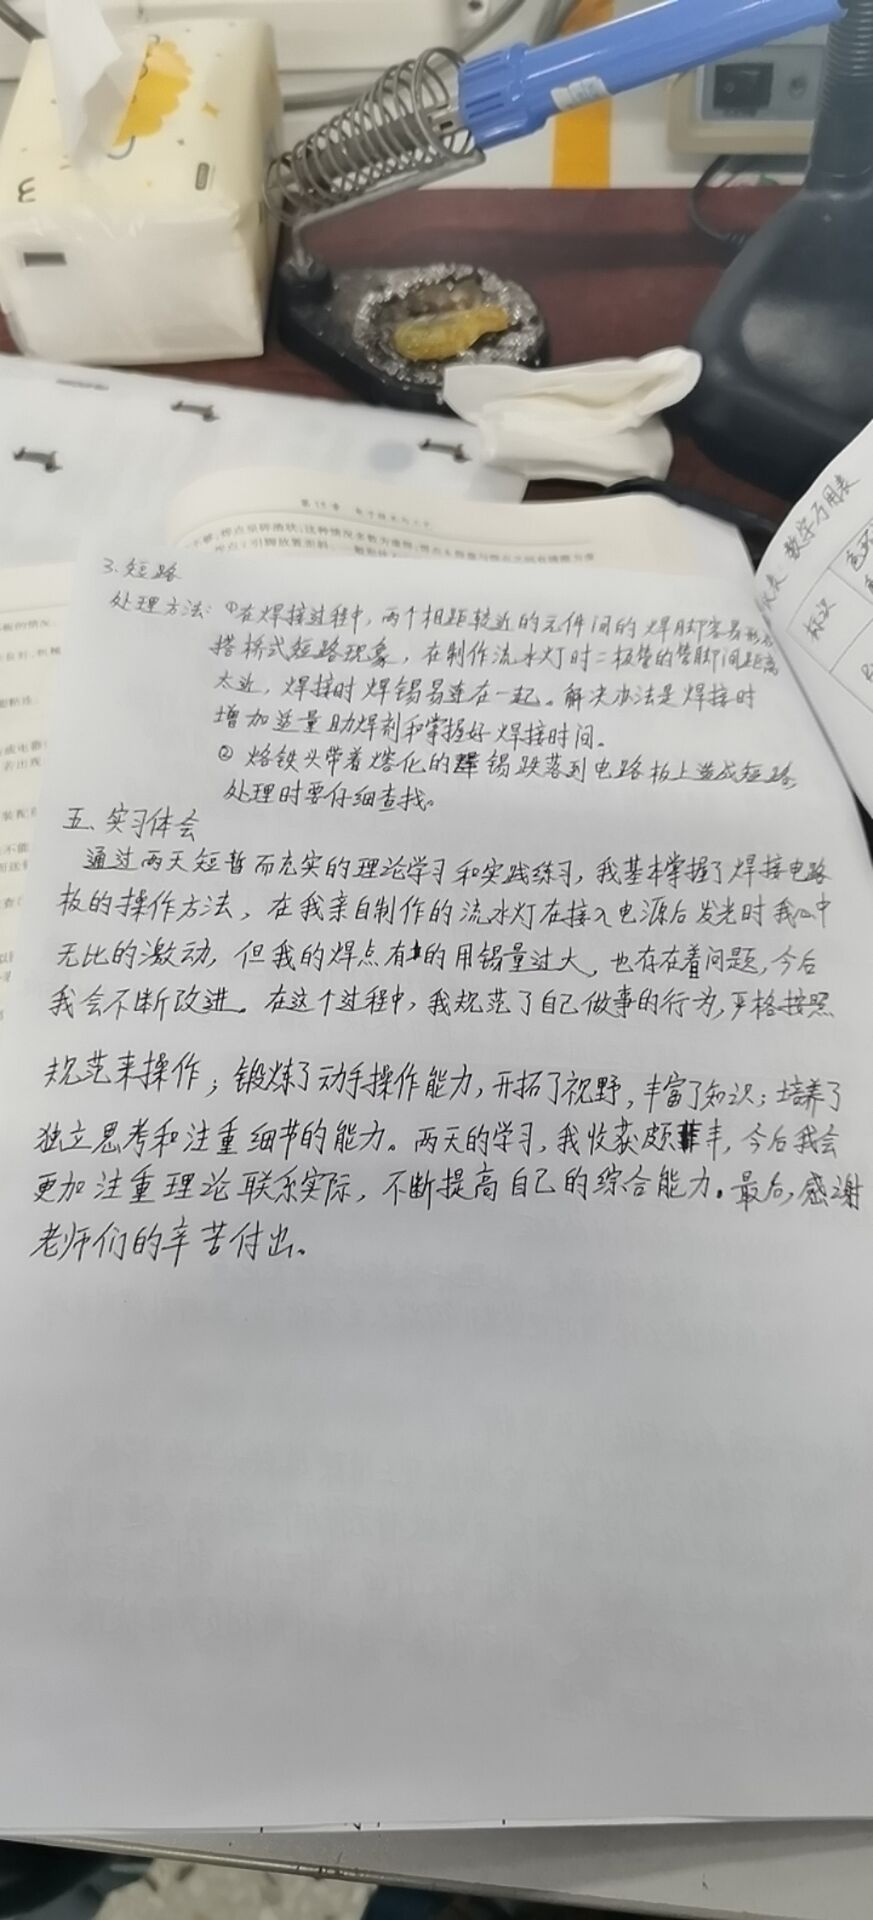 第15章
3.短路
处理方法:①在焊接过程中,两个相距较近的元件间的焊脚容易形成
搭桥式短路现象,在制作流水灯时二极管的管脚间距离
太近,焊接时焊锡易连在一起。解决办法是焊接时
增加适量助焊剂和掌握好焊接时间。
②烙铁头带着熔化的焊锡跌落到电路板上造成短路,
处理时要仔细查找。
五、实习体会
通过两天短暂而充实的理论学习和实践练习,我基本掌握了焊接电路
板的操作方法,在我亲自制作的流水灯在接入电源后发光时我心中
无比的激动,但我的焊点有的用锡量过大,也存在着问题,今后
我会不断改进。在这个过程中,我规范了自己做事的行为,严格按照
规范来操作;锻炼了动手操作能力,开拓了视野,丰富了知识;培养了
独立思考和注重细节的能力。两天的学习,我收获颇丰,今后我会
更加注重理论联系实际,不断提高自己的综合能力。最后,感谢
老师们的辛苦付出。
仪表:数字万用表
标识